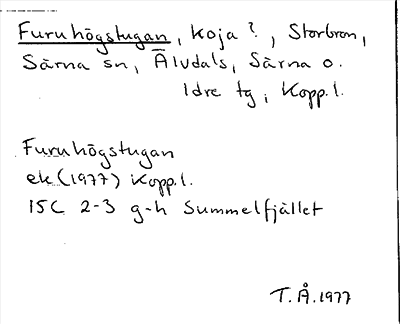 Furuhögstugan, koja?, Storbron,
Särna sn, Älvdals, Särna o.
Idre tg, Kopp.l.
Furuhögstugan
ek (1977) Kopp.l.
15C 2-3 g-h Summelfjället
T.Å.1977